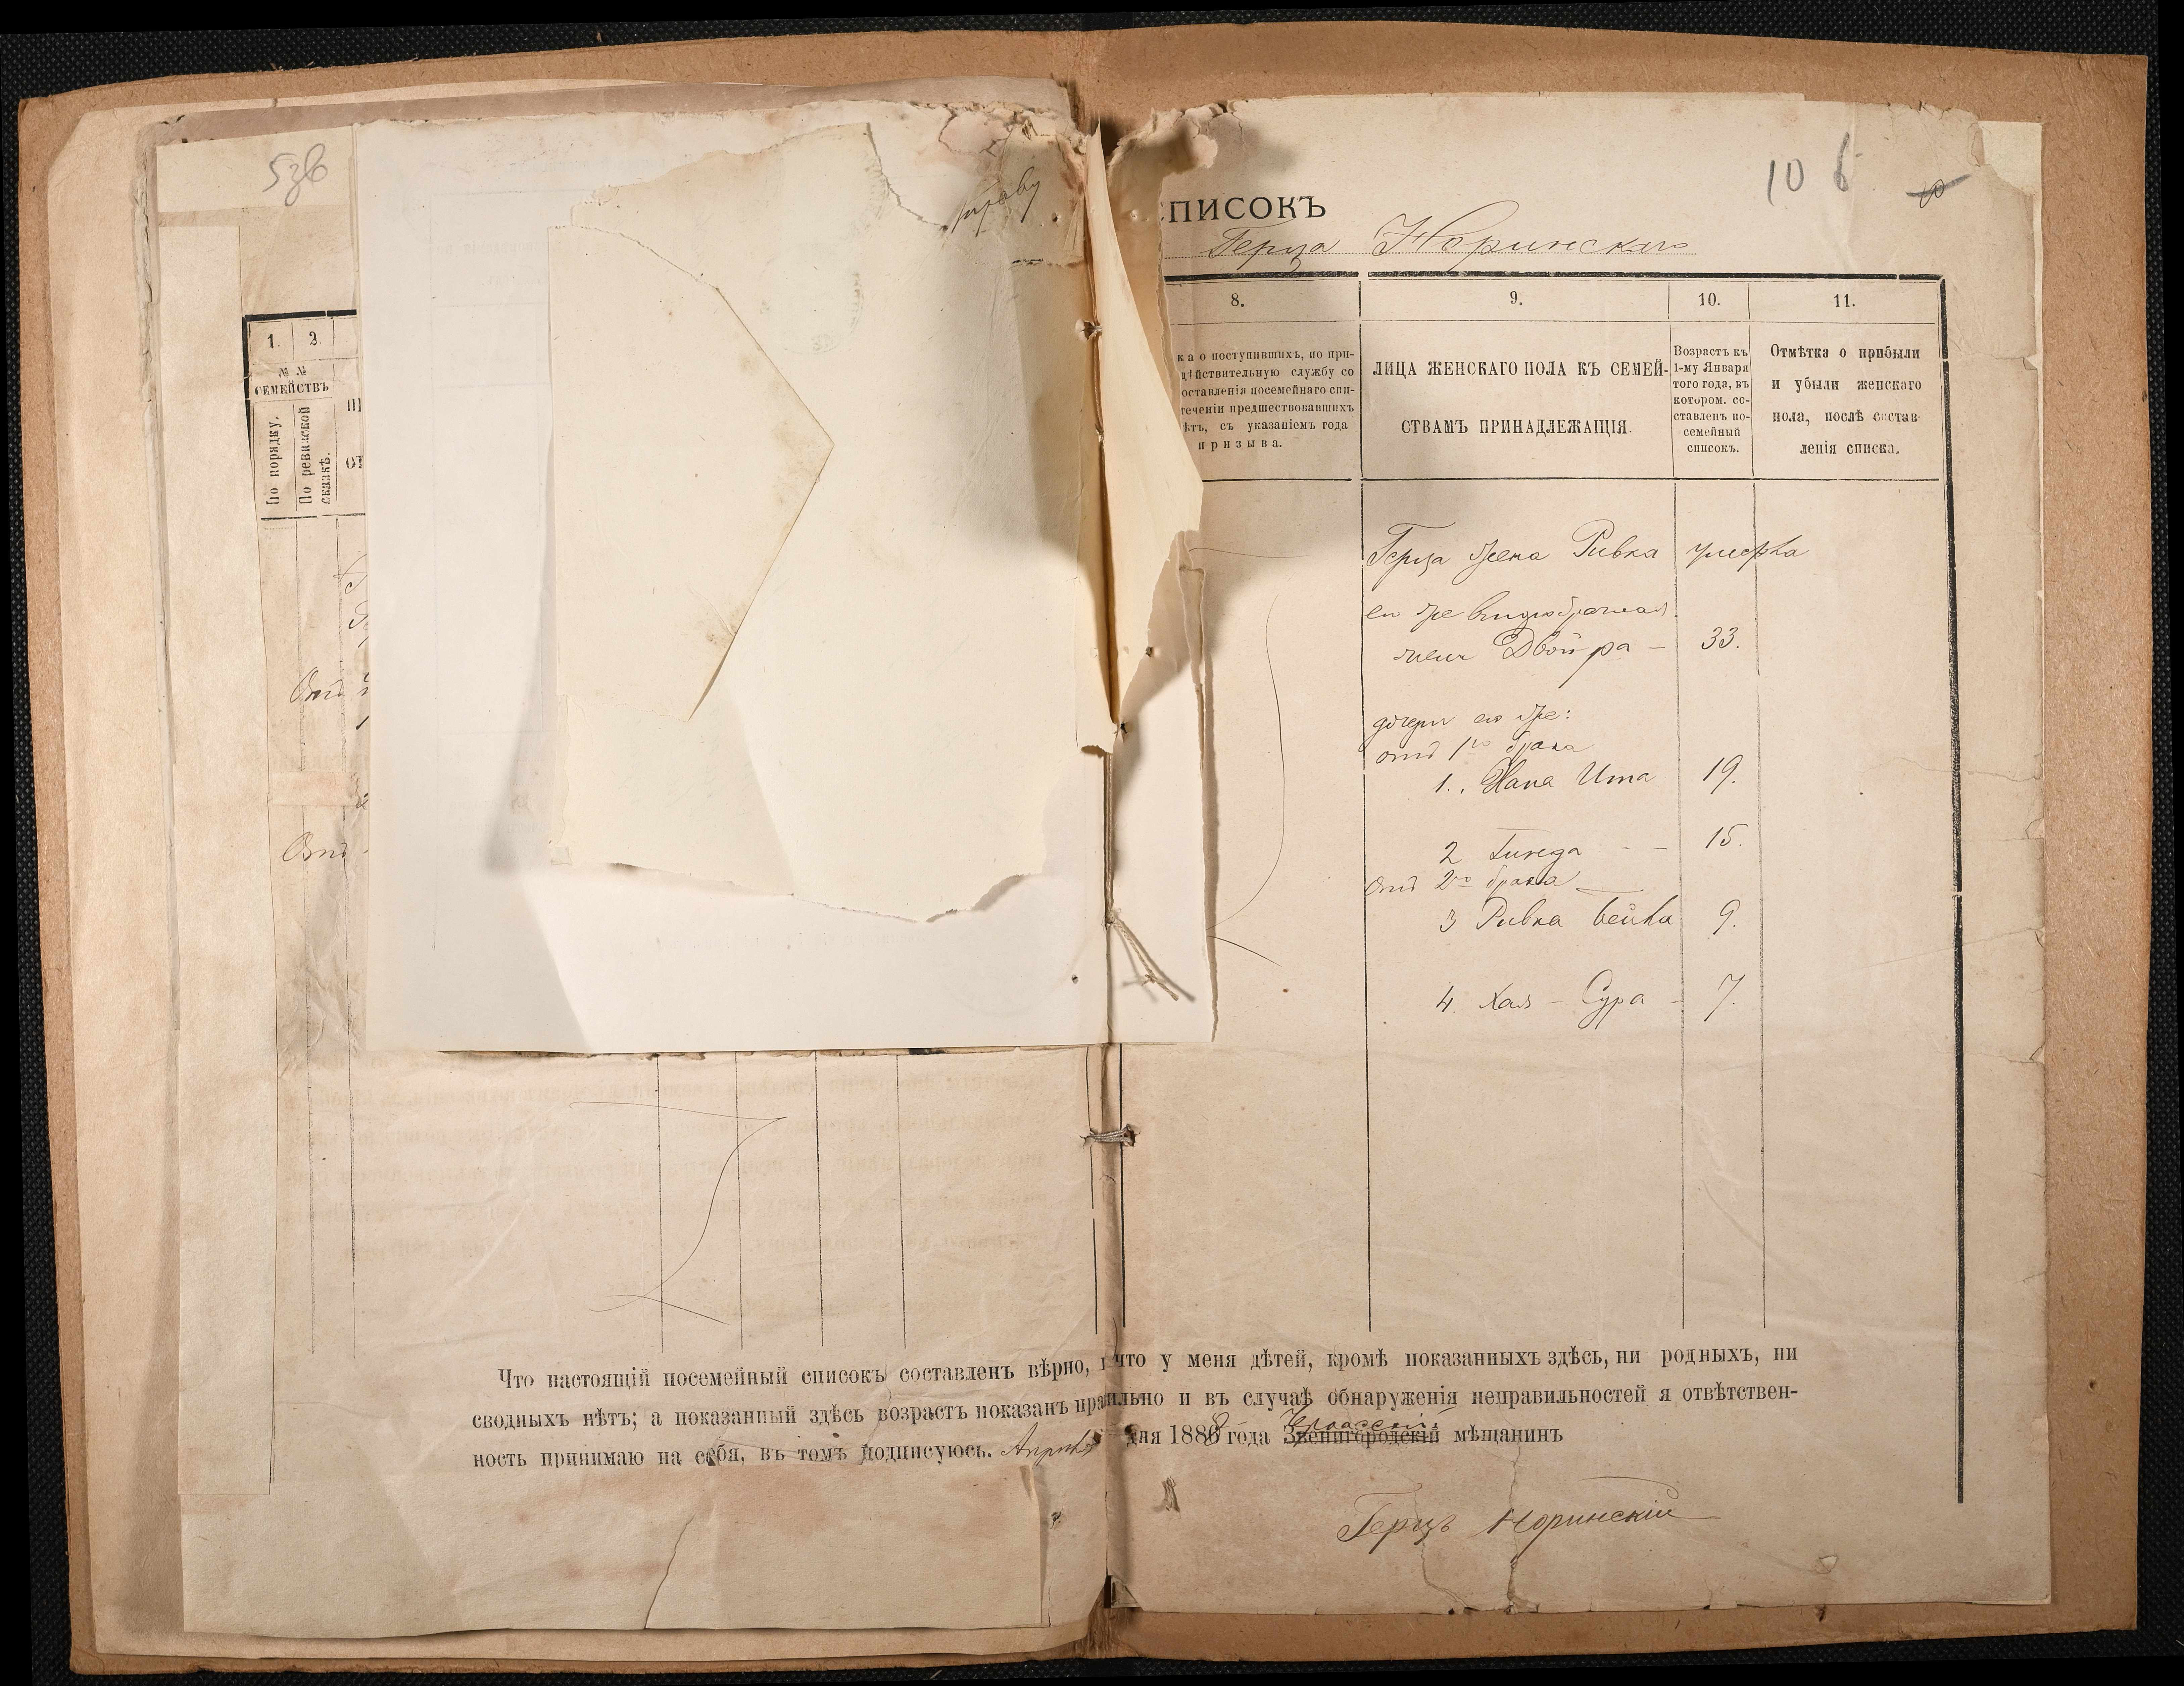 53б
1.
2.
№ №
СЕМЕЙСТВЪ
По порядку.
По ревизской
сказкѣ.
Отъ
Отъ
10 6
ПИСОКЪ
Герца Норинскаго
8.
9.
10.
11.
ка о поступившихъ, по при-
дѣйствительную службу со
оставленія посемейнаго спи-
теченіи предшествовавшихъ
ѣтъ, съ указаніемъ года
призыва.
ЛИЦА ЖЕНСКАГО ПОЛА КЪ СЕМЕЙ-
СТВАМЪ ПРИНАДЛЕЖАЩІЯ.
Возрастъ къ
1-му Января
того года, въ
котором. со-
ставленъ по-
семейный
списокъ.
Отмѣтка о прибыли
и убыли женскаго
пола, послѣ состав-
ленія списка.
Герца жена Ривка умерла
его же второбрачная
жена Двойра - 33.
дочери его же:
отъ 1го брака
1. Хана Ита 19.
2 - - 15.
Отъ 2го брака
3 Ривка Бейла 9.
4. Хая - Сура - 7.
Что настоящій посемейный списокъ составленъ вѣрно, и что у меня дѣтей, кромѣ показанныхъ здѣсь, ни родныхъ, ни
сводныхъ нѣтъ; а показанный здѣсь возрастъ показанъ правильно и въ случаѣ обнаруженія неправильностей я отвѣтствен-
ность принимаю на себя, въ томъ подписуюсь. Апрѣля дня 1888 года Звенигородскій Черкасскій мѣщанинъ
Герцъ Норинскій